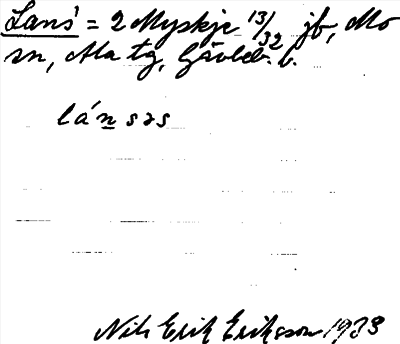 Lans' = 2 Myskje 13/32 jb, Mo
sn, Ala tg, Gävleb. l.
lánsəs
Nils Erik Eriksson 1933